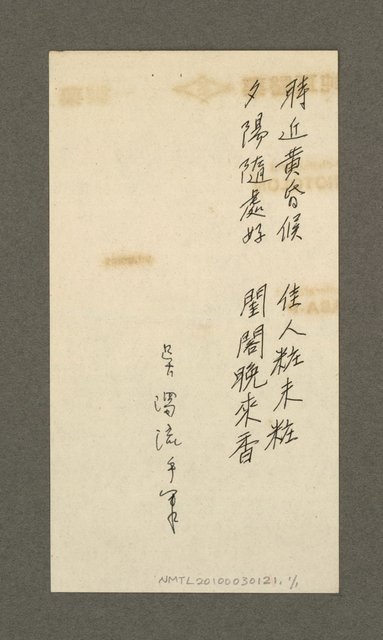 時近黃昏候　佳人粧未粧
夕陽隨處好　閨閣晚來香
吳濁流手筆
NMTL20100030121, 1/1